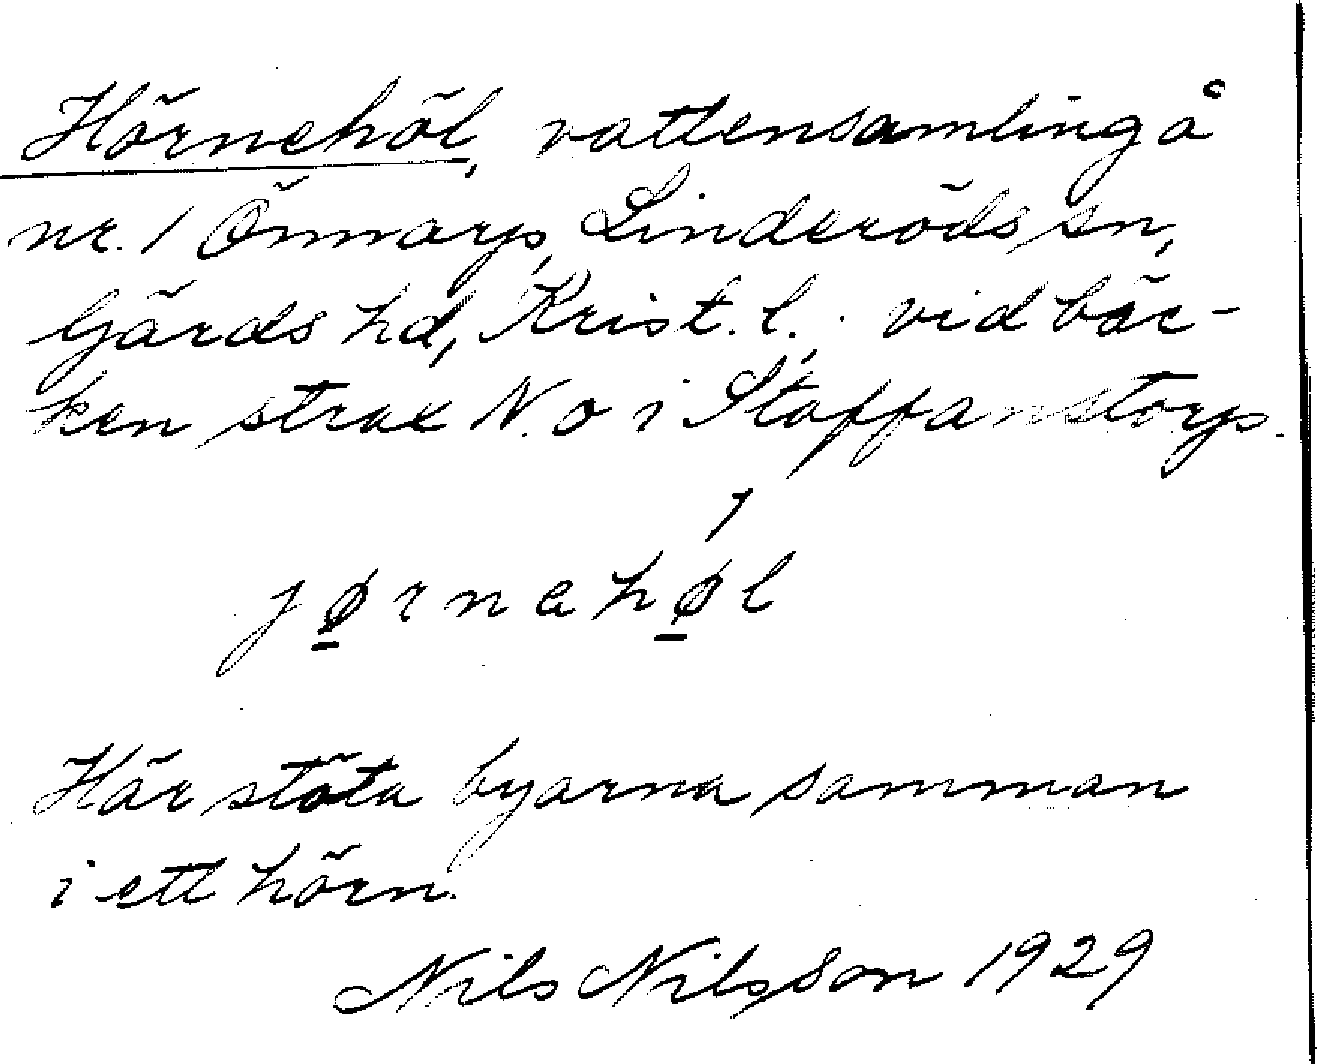 Hörnehöl, vattensamling å
nr. 1 Önnarp, Linderöds sn,
Gärds hd, Krist. l., vid bäc-
ken strax N. o i Staffanstorp.
jø̠rnahø̠l
Här stöta byarna samman
i ett hörn.
Nils Nilsson 1929